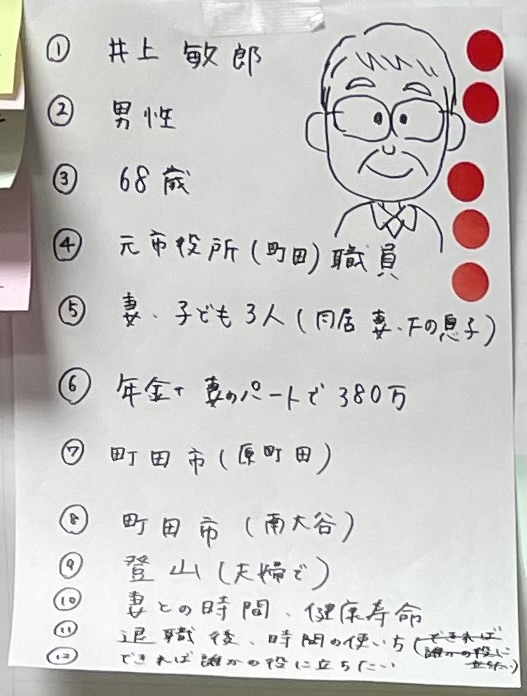 ① 井上 敏郎
② 男性
③ 68歳
④ 元市役所(町田)職員
⑤ 妻、子ども3人(同居 妻、下の息子)
⑥ 年金+妻のパートで380万
⑦ 町田市(原町田)
⑧ 町田市(南大谷)
⑨ 登山(夫婦で)
⑩ 妻との時間、健康寿命
⑪ 退職後、時間の使い方(できれば誰かの役に立ちたい)
⑫ できれば誰かの役に立ちたい